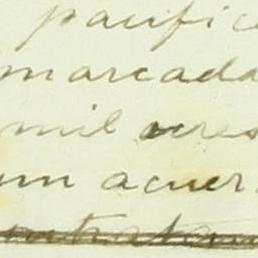 pacific
marcada
mil acres
un acuer